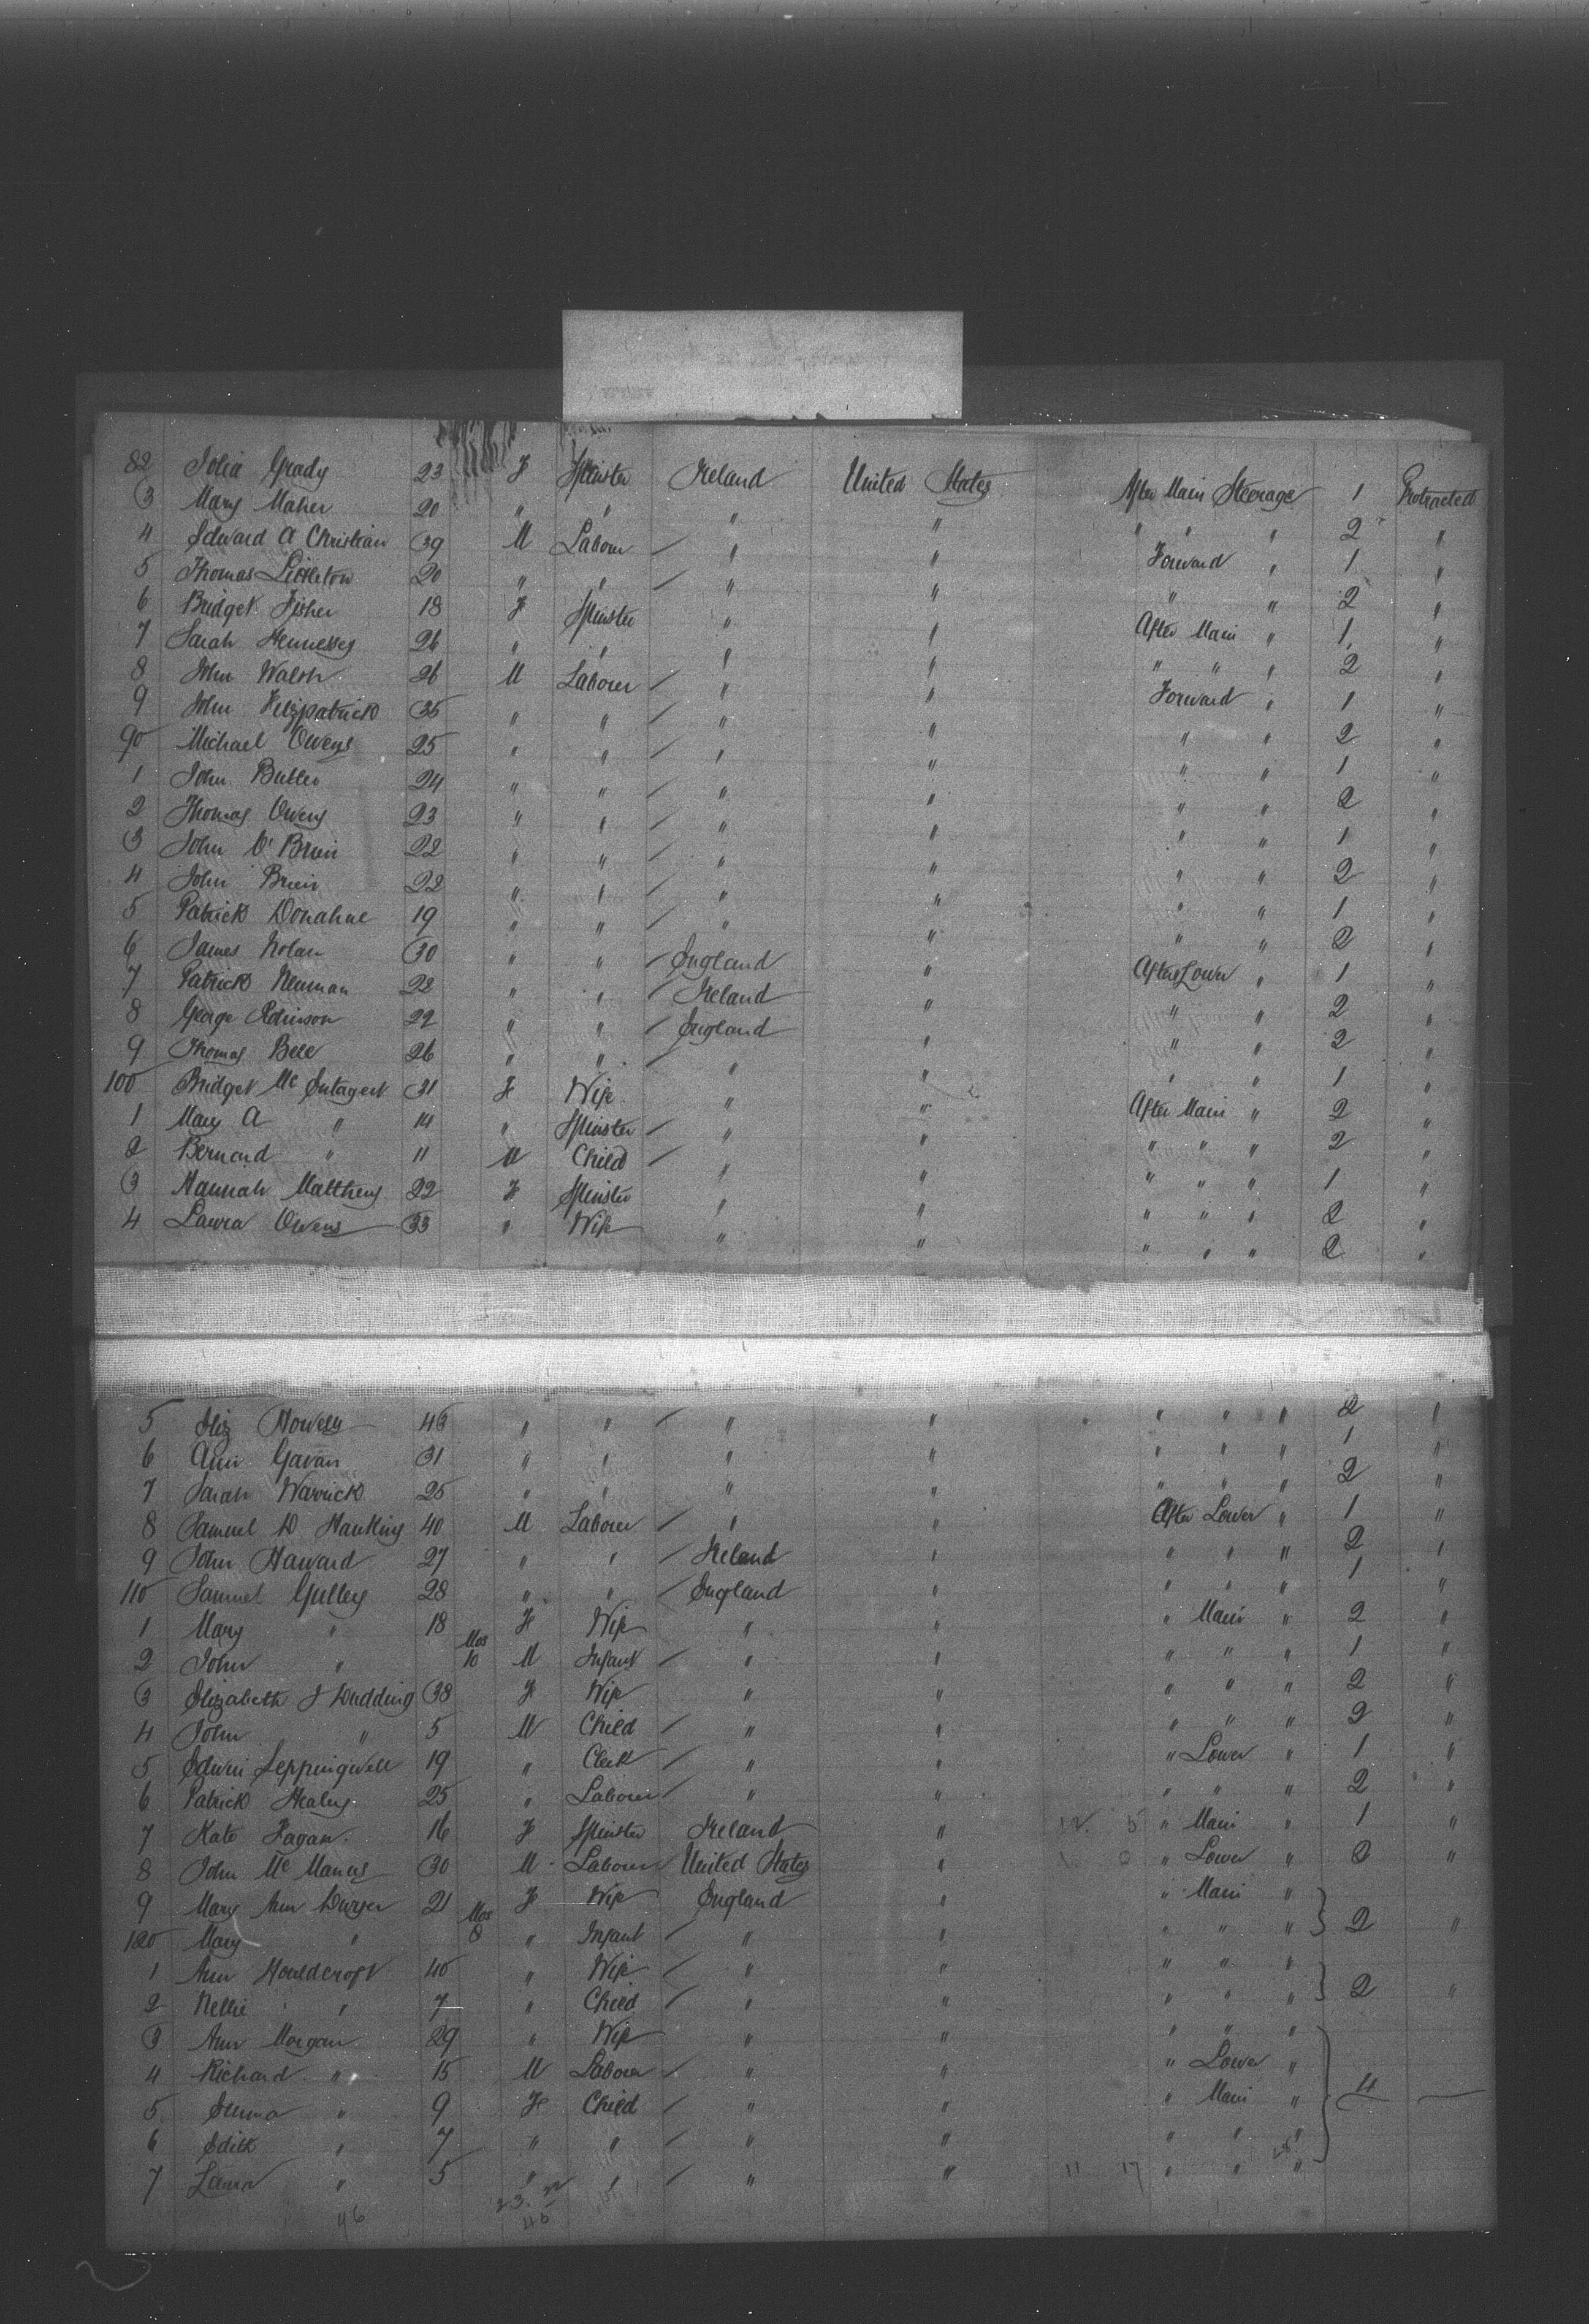 82 Julia Grady 23 F Spinster Ireland United States After Main Steerage 1 Protracted
3 Mary Maher 20 " " " " " " " 2 "
4 Edward A Christian 39 M Labourer " " Forward " 1 "
5 Thomas Littleton 20 " " " " " " 2 "
6 Bridget Fisher 18 F Spinster " " After Main " 1 "
7 Sarah Hennessy 26 " " " " " " " 2 "
8 John Walsh 26 M Labourer " " Forward " 1 "
9 John Fitzpatrick 35 " " " " " " 2 "
90 Michael Owens 25 " " " " " " 1 "
1 John Butler 24 " " " " " " 2 "
2 Thomas Owens 23 " " " " " " 1 "
3 John O'Brien 22 " " " " " " 2 "
4 John Brien 22 " " " " " " 1 "
5 Patrick Donahue 19 " " " " " " 2 "
6 James Nolan 30 " " England " After Lower " 1 "
7 Patrick Neuman 22 " " Ireland " " " 2 "
8 George Robinson 22 " " England " " " 2 "
9 Thomas Bell 26 " " " " " " 1 "
100 Bridget Mc Entagert 31 F Wife " " After Main " 2 "
1 Mary A " 14 " Spinster " " " " " 2 "
2 Bernard " 11 M Child " " " " " 1 "
3 Hannah Matthews 22 F Spinster " " " " " 2 "
4 Laura Owens 33 " Wife " " " " " 2 "
5 Eliz Howells 45 " " " " " " " 2 "
6 Ann Gavan 31 " " " " " " " 1 "
7 Sarah Warrick 25 " " " " " " " 2 "
8 Samuel D Hawkins 40 M Labourer " " After Lower " 1 "
9 John Haward 27 " " Ireland " " " " 2 "
110 Samuel Gulley 28 " " England " " " " 1 "
1 Mary " 18 F Wife " " " Main " 2 "
2 John " Mos 10 M Infant " " " " " 1 "
3 Elizabeth J Dudding 38 F Wife " " " " " 2 "
4 John " 5 M Child " " " " " 2 "
5 Edwin Leppingwell 19 " Clerk " " " Lower " 1 "
6 Patrick Healy 25 " Labourer " " " " " 2 "
7 Kate Fagan 16 F Spinster Ireland " " Main " 1 "
8 John Mc Manus 30 M Labourer United States " " Lower " 2 "
9 Mary Ann Dwyer 21 F Wife England " " Main "
120 Mary " Mos 8 " Infant " " " " " 2 "
1 Ann Houldcroft 40 " Wife " " " " "
2 Nellie " 7 " Child " " " " " 2 "
3 Ann Morgan 29 " Wife " " " " "
4 Richard " 15 M Labourer " " " Lower "
5 Emma " 9 F Child " " " Main " 4
6 Edith " 7 " " " " " " "
7 Laura " 5 " " " " 11 17 " " "
46 23 46